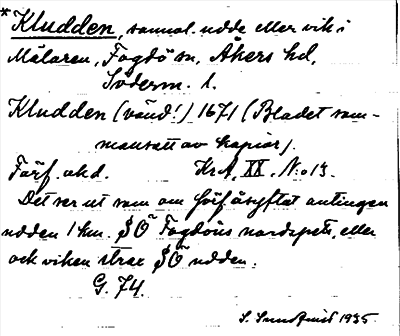 *Kludden, sannol. udde eller vik i
Mälaren, Fogdö sn, Åkers hd,
Söderm. l.
Kludden (vänd!) 1671 (Bladet sam-
mansatt av kopior).
Förf. okd. KrA, XX, N:o 13.
Det ser ut som om förf åsyftat antingen
udden 1 km. SÖ Fogdöns nordspets, eller
ock viken strax SÖ udden.
G. 74.
S. Sundquist 1935